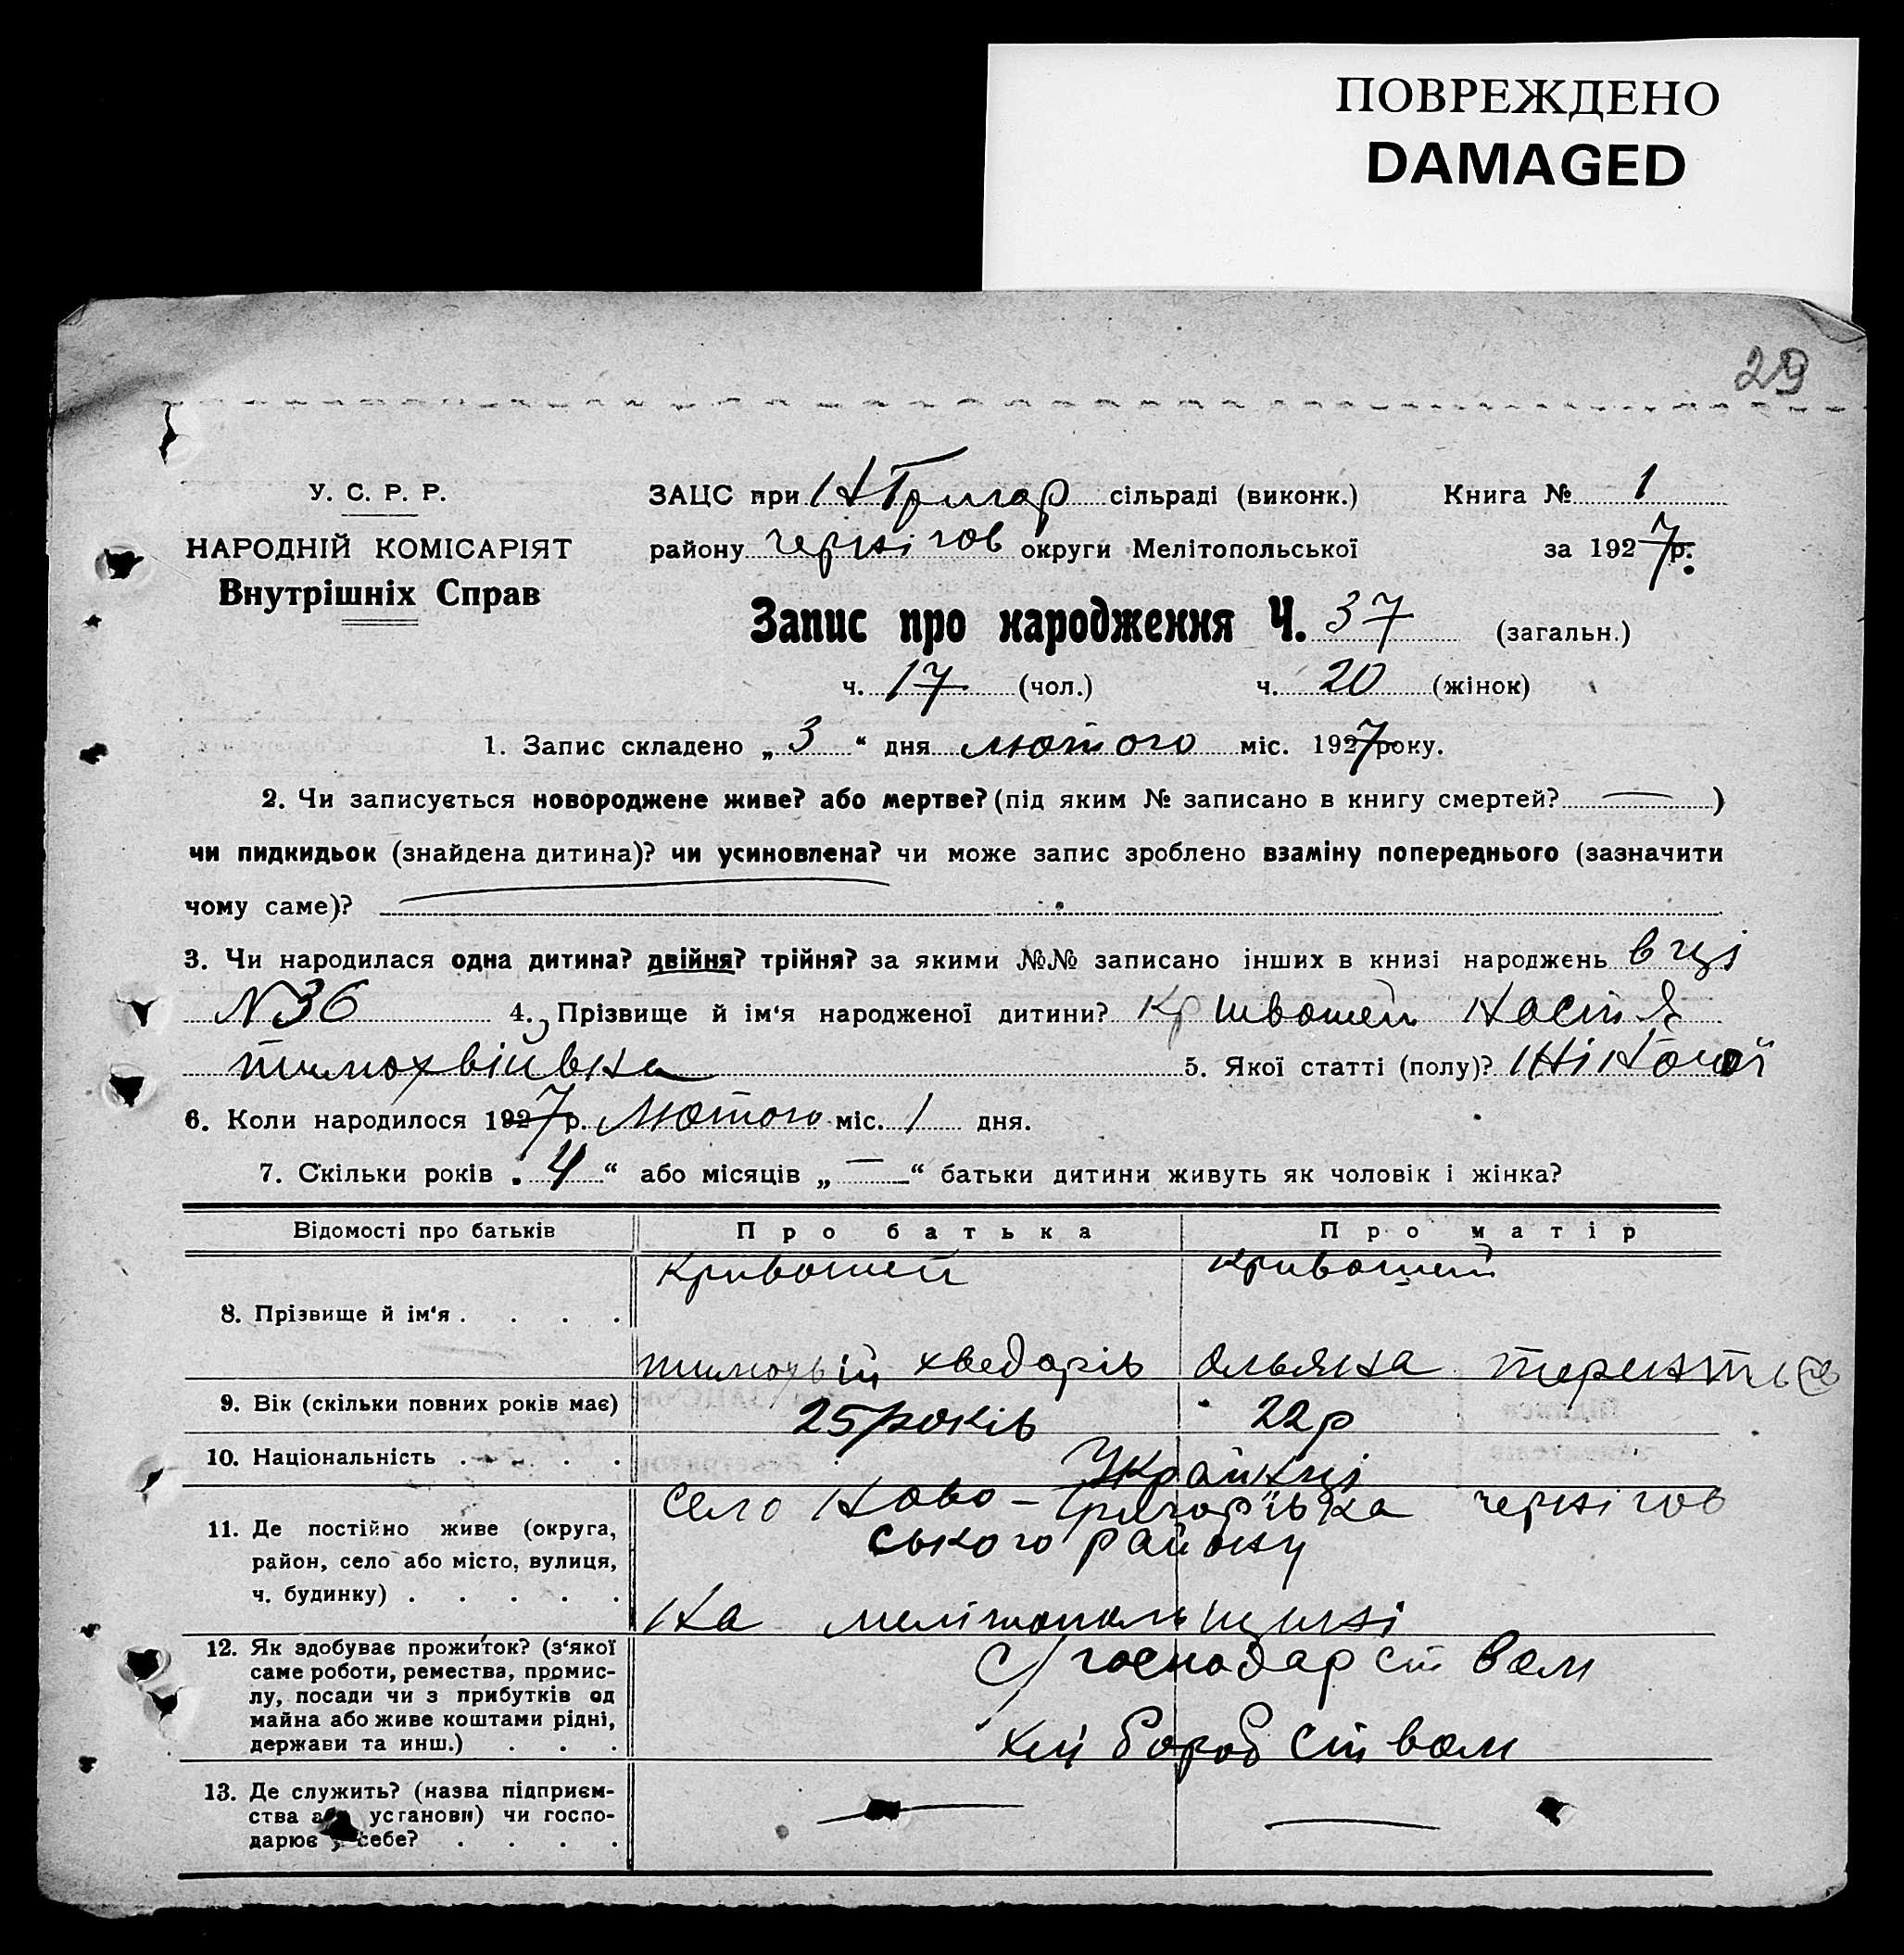 ПОВРЕЖДЕНО
DAMAGED
29
У. С. Р. Р.
НАРОДНІЙ КОМІСАРІЯТ
Внутрішніх Справ
ЗАЦС при Н Григор сільраді (виконк.) Книга № 1
району чернігов округи Мелітопольської за 1927 р.
Запис про народження Ч. 37 (загальн.)
ч. 17 (чол.) ч. 20 (жінок)
1. Запис складено „3“ дня лютого міс. 1927 року.
2. Чи записується новороджене живе? або мертве? (під яким № записано в книгу смертей? — )
чи пидкидьок (знайдена дитина)? чи усиновлена? чи може запис зроблено взаміну попереднього (зазначити
чому саме)?
3. Чи народилася одна дитина? двійня? трійня? за якими №№ записано інших в книзі народжень в ці
N 36 4. Прізвище й ім‘я народженої дитини? Кривошей Настя
тимохвіівна 5. Якої статті (полу)? Жіночої
6. Коли народилося 1927 р. Лютого міс. 1 дня.
7. Скільки років „4“ або місяців „—“ батьки дитини живуть як чоловік і жінка?
Відомості про батьків Про батька Про матір
8. Прізвище й ім‘я . . . . Кривошей Кривошей
тимохвій хведорів ольяна терентьев
9. Вік (скільки повних років має) 25 років 22 р
10. Національність . . . . . Українці
11. Де постійно живе (округа, район, село або місто, вулиця, ч. будинку) . . . . . село Ново-Григорівка чернігов
ського району
на мелітопольщині
12. Як здобуває прожиток? (з‘якої саме роботи, ремества, промислу, посади чи з прибутків од майна або живе коштами рідні, держави та инш.) . . . С/господарством
хліборобством
13. Де служить? (назва підприємства або установи) чи господарює у себе? . . . . — —